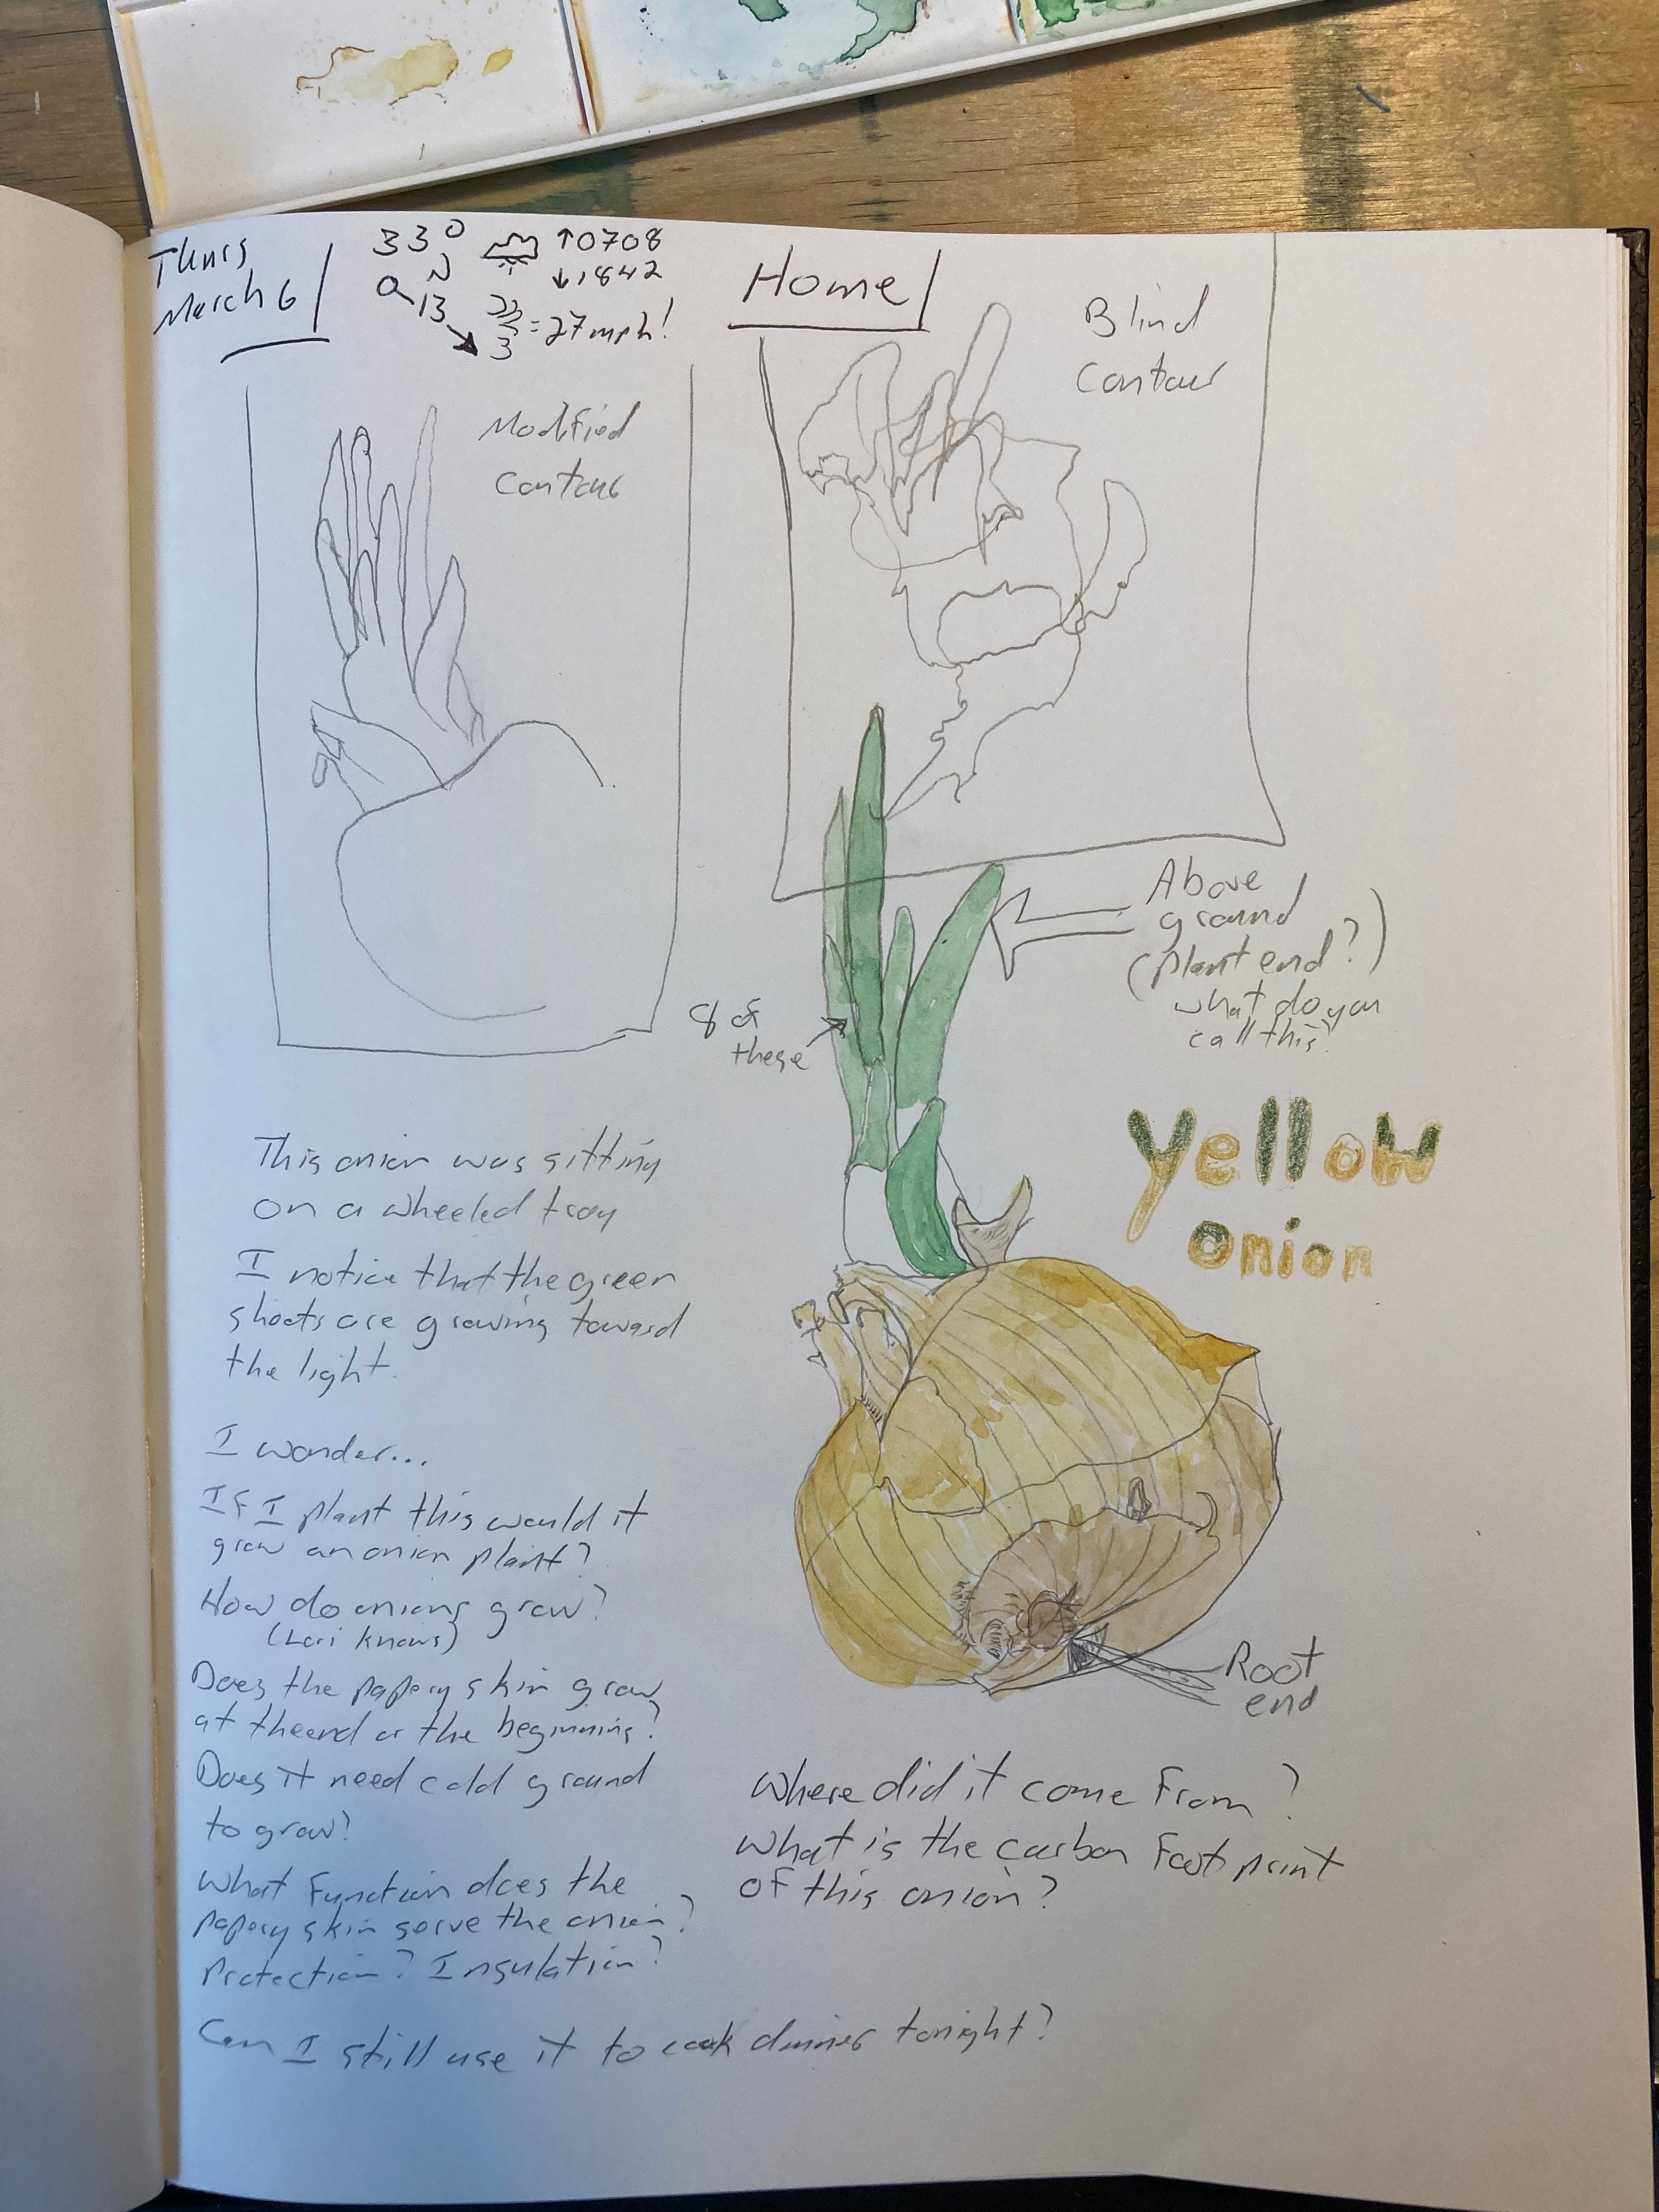 Thurs
March 6
33° ↑0708
N ↓1842
13
= 27 mph!
Home
Modified
Contour
Blind
Contour
Above
ground
(plant end?)
what do you
call this?
8 of
these
Yellow
Onion
This onion was sitting
on a wheeled tray
I notice that the green
shoots are growing toward
the light.
I wonder...
If I plant this would it
grow an onion plant?
How do onions grow?
(Lori knows)
Does the papery skin grow
at the end or the beginning?
Does it need cold ground
to grow?
What function does the
papery skin serve the onion?
Protection? Insulation?
Can I still use it to cook dinner tonight?
Root
end
Where did it come from?
What is the carbon footprint
of this onion?